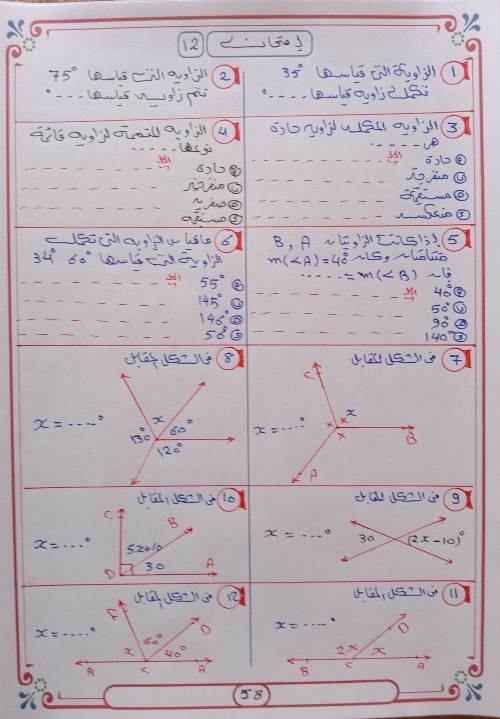 إمتحان 12
1 الزاوية التى قياسها 35°
تكمل زاوية قياسها ....°
2 الزاوية التى قياسها 75°
تتم زاوية قياسها ....°
3 الزاوية المكملة لزاوية حادة
هى .....
الحل
حادة
منفرجة
مستقيمة
منعكسة
4 الزاوية المتممة لزاوية قائمة
نوعها .....
الحل
حادة
منفرجة
صفرية
مستقيمة
5 إذا كانت الزاويتان B , A
متتامتان وكان m(<A)=40°
فان m(<B)= .....
الحل
40°
50°
90°
140°
6 ما قياس الزاوية التى تكمل
الزاوية التى قياسها 34° 60°
الحل
55°
145°
146°
56°
7 فى الشكل المقابل
C
x
x x
x
B
A
x = ....°
8 فى الشكل المقابل
x = ....°
x
60°
130°
120°
9 فى الشكل المقابل
x = ....°
30
(2x-10)°
10 فى الشكل المقابل
C
B
5x+10
x = ....°
30
D
A
11 فى الشكل المقابل
x = ....°
D
2x x
B C A
12 فى الشكل المقابل
F
D
x = ....°
60°
x
40°
B C A
58